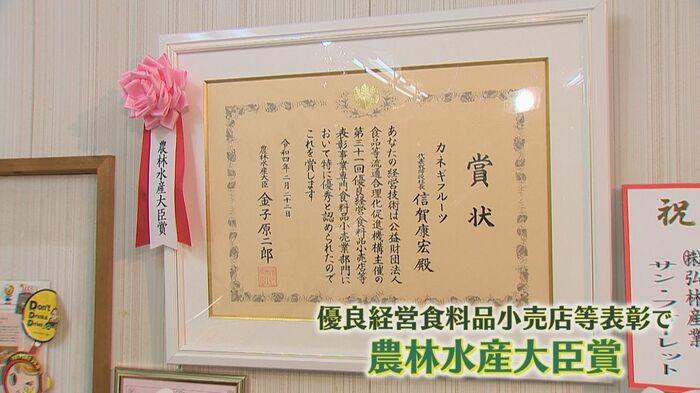 賞状
カネギフルーツ
代表取締役社長 信賀康宏殿
あなたの経営技術は公益財団法人
食品等流通合理化促進機構主催の
第三十一回優良経営食料品小売店等
表彰事業専門食料品小売業部門に
おいて特に優秀と認められたので
これを賞します
令和四年二月二十二日
農林水産大臣 金子原二郎
農林水産大臣賞
祝
㈱弘林産業
サン・フォーレット
Don't
Drink &
Drive
優良経営食料品小売店等表彰で
農林水産大臣賞